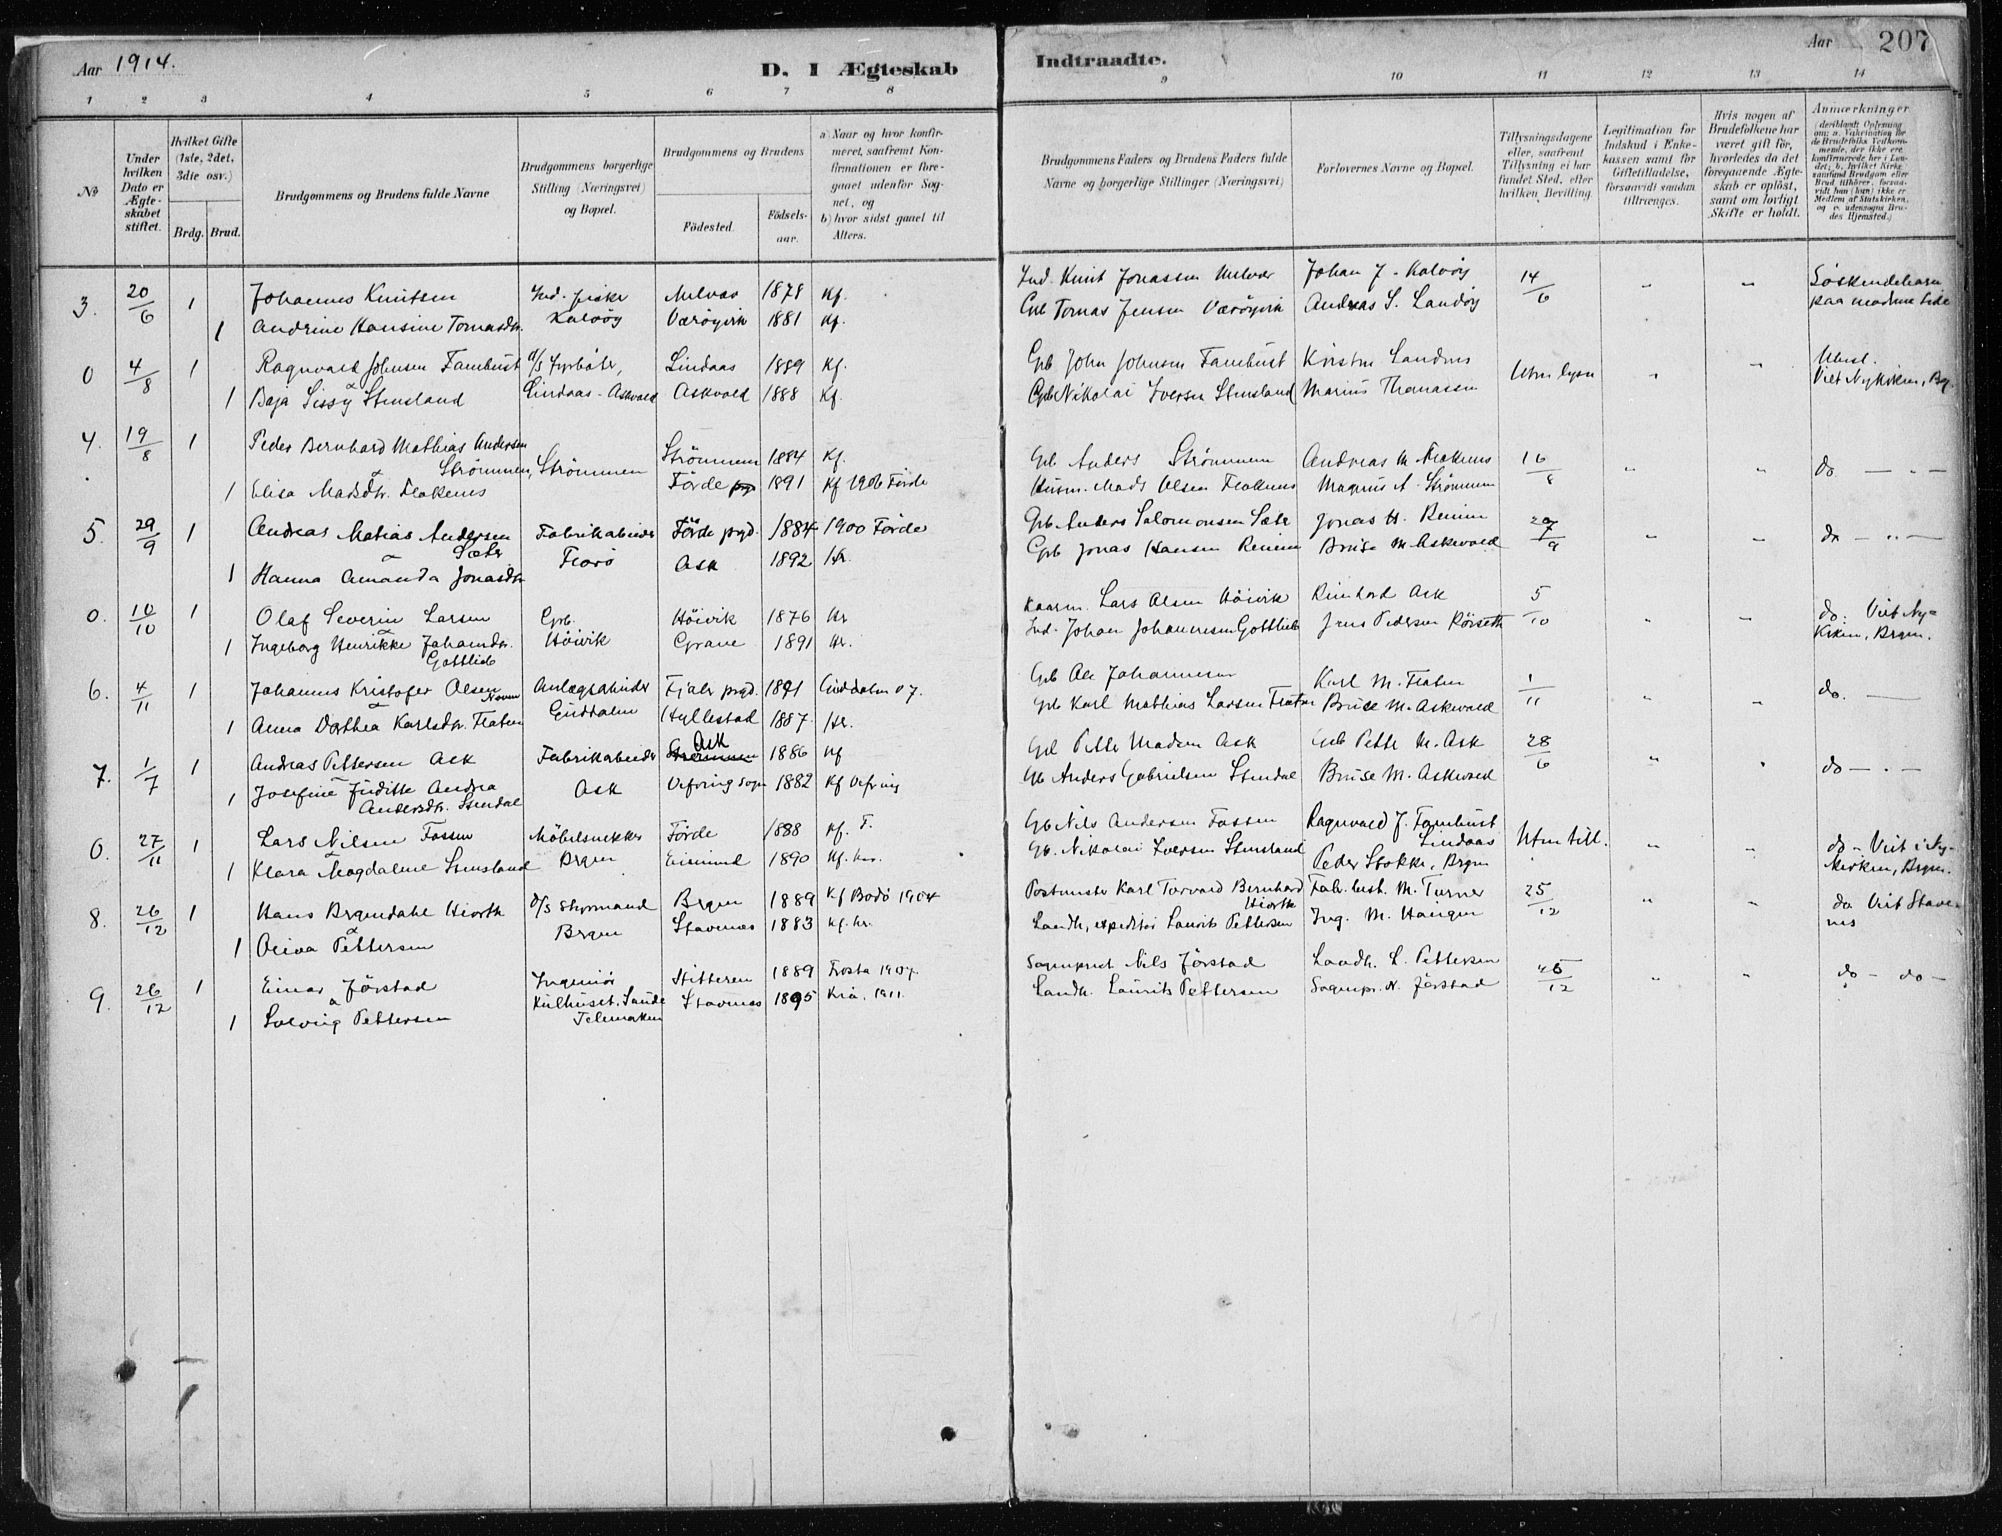 Aar 1914.
D. I Ægteskab
Indtraadte.
Aar
207
1 2 3 4 5 6 7 8 9 10 11 12 13 14
No
Under hvilken Dato er Ægteskabet stiftet.
Hvilket Gifte (1ste, 2det, 3die osv.)
Brdg. Brud.
Brudgommens og Brudens fulde Navne
Brudgommens borgerlige Stilling (Næringsvei) og Bopæl.
Brudgommens og Brudens
Fødested.
Fødsels-aar.
a) Naar og hvor konfirmeret, saafremt Konfirmationen er foregaaet udenfor Sognet, og
b) hvor sidst gaaet til Alters.
Brudgommens Faders og Brudens Faders fulde Navne og borgerlige Stillinger (Næringsvei)
Forlovernes Navne og Bopæl.
Tillysningsdagene eller, saafremt Tillysning ei har fundet Sted, efter hvilken Bevilling.
Legitimation for Indskud i Enkekassen samt for Giftetilladelse, forsaavidt saadan tiltrænges.
Hvis nogen af Brudefolkene har været gift før, hvorledes da det foregaaende Ægteskab er opløst, samt om lovligt Skifte er holdt.
Anmærkninger
3. 20/6 1 Johannes Knutsen Ind. fisker Melvær 1878 Kf. Ind. Knut Jonassen Melvær Johan J. Kalvöy 14/6 " " Söskendebarn
1 Andrine Hansine Tomasdtr. Kalvöy Værøyvik 1881 Kf. Gbr Tomas Jensen Værøyvik Andreas S. Landöy paa mødrene side
0 4/8 1 Ragnvald Johnsen Fambust d/s fyrböter, Lindaas 1889 Kf. Gb John Johnsen Fambust Kristen Landnes Uten lysn " "
1 Baja Sissy Stensland Lindaas - Askvold Askvold 1888 Kf. Gb Nikolai Iversen Stensland Marius Thomassen Viet Nykirken, Bg.
4. 19/8 1 Peder Bernhard Mathias Andersen Strömmen, Strömmen Strömmen 1884 Kf. Gb Anders Strömmen Andreas M. Flokenes 16/8 " " do — —
1 Elisa Madsdtr. Flokenes Förde 1891 Kf 1906 Förde Husm. Mads Olsen Flokenes Magnus A. Strömmen
5. 29/9 1 Andreas Matias Andersen Sæter Fabrikabeider Förde pgd. 1884 1900 Förde Gb Anders Salomonsen Sæter Jonas H. Renen 27/9 " " do — " —
1 Hanna Amanda Jonasdtr Florö Ask 1892 Gb Jonas Hansen Renen Bruse M. Askvold
0. 10/10 1 Olaf Severin Larsen Gb. Höivik 1876 Hr Kaarm. Lars Olsen Höivik Rinhard Ask 5/10 " " do. Viet Ny-
1 Ingeborg Henrikke Johansdtr. Gottlieb Höivik Grane 1891 Hr. Ind. Johan Johannesen Gottlieb Jens Pedersen Rörseth Kirken, Brgen.
6. 4/11 1 Johannes Kristofer Olsen Anlægsabeider Fjaler pgd. 1891 Guddalen 07. Gb Ole Johannesen Karl M. Flaten 1/11 " " do. —
1 Anna Dorthea Karlsdtr. Flaten Guddalen Hyllestad 1887 Hr. Gb Karl Mathias Larsen Flaten Bruse M. Askvold
7. 1/7 1 Andreas Pettersen Ask Fabrikabeider Ask 1886 Kf Gb Petter Madsen Ask Gb Petter M. Ask 28/6 " " do — " —
1 Josefine Judith Andrea Andersdtr. Stendal Ask Vefring sogn 1882 Kf Vefring Gb Anders Gabrielsen Stendal Bruse M. Askvold
0. 27/11 1 Lars Nilsen Fossen Möbelsnekker Förde 1888 Kf. F. Gb Nils Andersen Fossen Ragnvald J. Fambust Lindaas Uten till. " " do - Viet i Ny-
1 Klara Magdalene Stensland Brgen 1890 Kf. her. Gb. Nikolai Iversen Stensland Peder Stokke, Brgen kirken, Brgen.
8. 26/12 1 Hans Brgendahl Hiorth d/s Styrmand Brgen 1889 Kf Bodö 1904 Postmester Karl Torvald Bernhard Hiorth Fabr. best. M. Turner 25/12 " " do Viet Stave-
1 Oliva Pettersen Brgen Stavenes 1883 Kf. hr. Landh, expeditör Laurits Pettersen Ing. M. Haugen nes
9. 26/12 1 Einar Jörstad Ingeniör Hitteren 1889 Frosta 1904. Sogneprest Nils Jörstad Landh. L. Pettersen 25/12 " " do - do -
1 Solveig Pettersen Sande Telemarken Stavenes 1895 Kria. 1911. Landh. Laurits Pettersen Sognepr. N. Jörstad